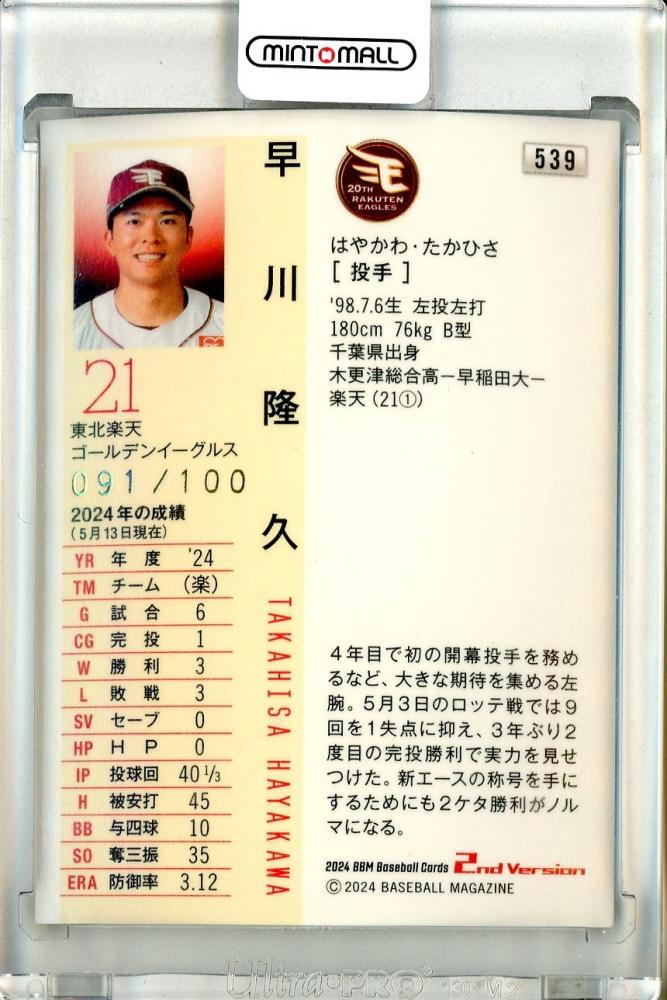 MINTMALL
539
20TH
RAKUTEN
EAGLES
早川隆久
TAKAHISA HAYAKAWA
はやかわ・たかひさ
[ 投手 ]
'98.7.6生 左投左打
180cm 76kg B型
千葉県出身
木更津総合高ー早稲田大ー
楽天(21①)
21
東北楽天
ゴールデンイーグルス
091/100
2024年の成績
(5月13日現在)
YR 年度 '24
TM チーム (楽)
G 試合 6
CG 完投 1
W 勝利 3
L 敗戦 3
SV セーブ 0
HP HP 0
IP 投球回 40 1/3
H 被安打 45
BB 与四球 10
SO 奪三振 35
ERA 防御率 3.12
4年目で初の開幕投手を務め
るなど、大きな期待を集める左
腕。5月3日のロッテ戦では9
回を1失点に抑え、3年ぶり2
度目の完投勝利で実力を見せ
つけた。新エースの称号を手に
するためにも2ケタ勝利がノル
マになる。
2024 BBM Baseball Cards 2nd Version
©2024 BASEBALL MAGAZINE
Ultra·PRO